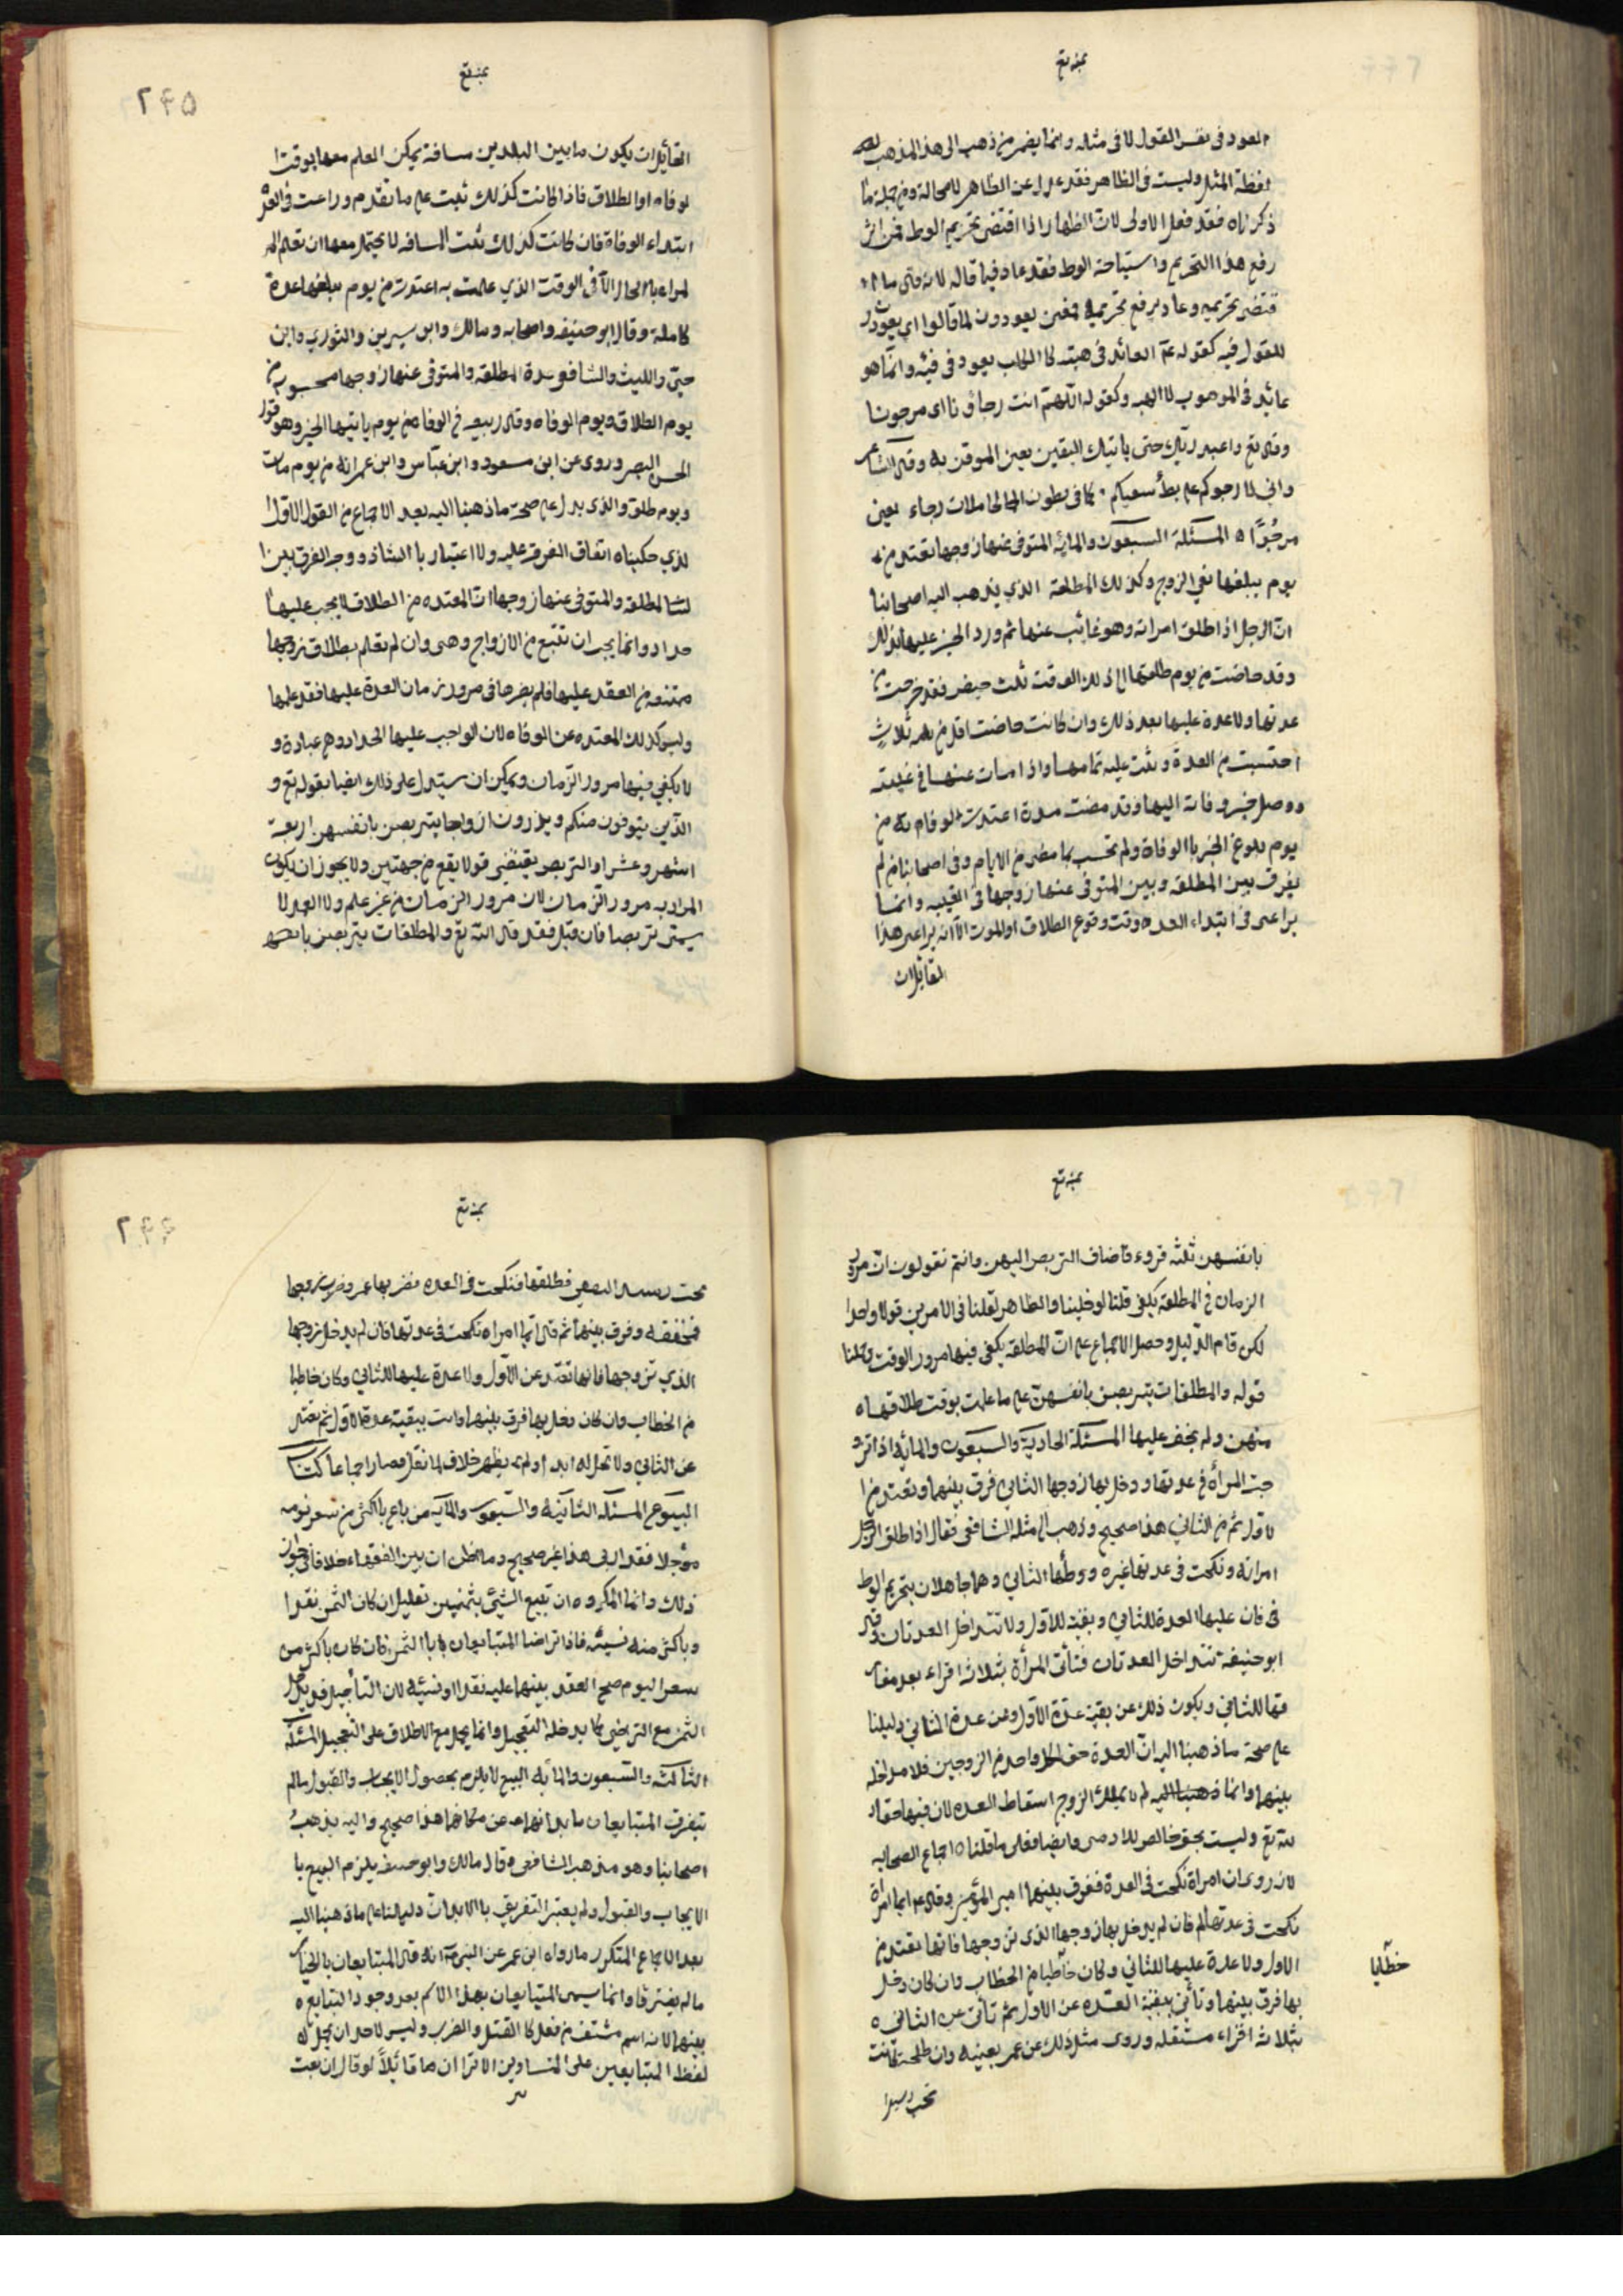 العود فى نفس القول لا فى مثله وانما يضمر من ذهب الى هذ المذهب
لفظة المثل وليست فى الظاهر فقد عدل عن الظاهر لا محالة ومن جملة ما
ذكرناه فقد فعل الاولى لان الظهار اذا اقتضى تحريم الوط فمن اثر
رفع هذا التحريم واستباحة الوط فقد عاد فيما قاله لانه
قتضى تحريمه وعاد يرفع تحريمه فمعنى يعودون لما قالوا اى يعودون
للمقول فيه كقوله عم العائد فى هبته كا الكلب يعود فى قيئه وانما هو
عائد فى الموهوب لا الهبه وكقوله اللهم انت رجاؤنا اى مرجونا
وقال تع واعبد ربك حتى ياتيك اليقين يعنى الموقن به وقال الشاعر
وانى لا رجوكم على بطؤ سعيكم كما فى بطون الحاملات رجاء يعنى
مرجُوًّا ه المسئلة السبعون والمائه المتوفى عنها زوجها تعتد من
يوم يبلغها نعى الزوج وكذلك المطلقة الذي يذهب اليه اصحابنا
ان الرجل اذا طلق امراته وهو غائب عنها ثم ورد الخبر عليها بذلك
وقد حاضت من يوم طلقها الى ذلك الوقت ثلث حيض فقد خرجت من
عدتها ولا عدة عليها بعد ذلك وان كانت حاضت اقل من ثلاث
احتسبت من العدة وبنت عليه تمامها واذا مات عنها فى غيبته
ووصل خبر وفاته اليها وقد مضت مدة اعتدت لوفاته من
يوم بلوغ الخبر با الوفاة ولم تحتسب بما مضى من الايام وفى اصحابنا من لم
يفرق بين المطلقه وبين المتوفى عنها زوجها فى الغيبه وانما
يراعى فى ابتداء العده وقت وقوع الطلاق او الموت الا انه يراعى هذا
القائل ان
٢٤٥
القائل ان يكون ما بين البلدين مسافة يمكن العلم معها بوقت ا
لوفاه او الطلاق فاذا كانت كذلك بنت على ما تقدم وراعت فى العدة
ابتداء الوفاة فان كانت كذلك المسافه لا يحتمل معها ان تعلم ا
لمراه با الحال الا فى الوقت الذي علمت به اعتدت من يوم يبلغها عدة
كاملة وقال ابو حنيفه واصحابه ومالك وابن سيرين والثوري وابن
حيّ والليث والشافعى عدة المطلقه والمتوفى عنها زوجها محسوب من
يوم الطلاق ويوم الوفاه وقال ربيعه فى الوفاه من يوم ياتيها الخبر وهو قول
الحسن البصر وروى عن ابن مسعود وابن عباس وابن عمر انه من يوم مات
ويوم طلق والذى يدل على صحة ما ذهبنا اليه بعد الاجماع من القول الاول ا
لذي حكيناه اتفاق الفرقه عليه ولا اعتبار با الشاذ ووجه الفرق بين ا
لمطلقه والمتوفى عنها زوجها ان المعتده من الطلاق لا يجب عليها
حداد وانما يجب ان تمتنع من الازواج وهى وان لم تعلم بطلاق زوجها
ممتنعه من العقد عليها فلم يضرها فى مرور زمان العدة عليها فقد علمها
وليس كذلك المعتده عن الوفاه لان الواجب عليها الحداد وهو عبادة و
لا يكفي فيها مرور الزمان ويمكن ان يستدل على ذلك ايضا بقوله تع و
الذين يتوفون منكم ويذرون ازواجا يتربصن بانفسهن اربعة
اشهر وعشرا والتربص يقتضي قولا يقع من جهتهن ولا يجوز ان يكون
المراد به مرور الزمان لان مرور الزمان من غير علم ولا
يسمى تربصا فان قيل فقد قال الله تع والمطلقات يتربصن بانفسهن
بانفسهن ثلثه قروء فاضاف التربص اليهن وانتم تقولون ان مرور
الزمان فى المطلقه يكفى قلنا لو خلينا والظاهر لقلنا فى الامرين قولا واحدا
لكن قام الدليل وحصل الاجماع على ان المطلقه يكفى فيها مرور الوقت وحملنا
قوله والمطلقات يتربصن بانفسهن على ما علمت بوقت طلاقها ه
منهن ولم يخف عليها المسئلة الحادية والسبعون والمائه اذا تزو
جت المرأة فى عدتها ودخل بها زوجها الثاني فرق بينهما وتعتد من ا
لاول ثم من الثاني هذا صحيح وذهب الى مثله الشافعى فقال اذا طلق الرجل
امراته ونكحت فى عدتها غيره ووطئها الثاني وهما جاهلان بتحريم الوط
فى فان عليها العدة للثاني وبقيته للاول ولا تتداخل العدتان وقال
ابو حنيفة تتداخل العدتان فتأتى المرأة بثلاثه اقراء بعد مفار
قتها للثاني ويكون ذلك عن بقية عدة الاول وعن عدة الثاني دليلنا
على صحة ما ذهبنا اليه ان العدة حق لكل واحد من الزوجين فلا مداخله
بينهما وانما ذهبنا اليه لم لا يملك الزوج اسقاط العده لان فيها حقا
لله تع وليست بحق خالص للادمى وايضا فعلى ما قلناه اجماع الصحابه
لانه روى ان امراة نكحت فى العدة ففرق بينهما امير المؤمنين وقال ايما امراة
نكحت فى عدتها فان لم يدخل بها زوجها الذى تزوجها فانها تعتد من
الاول ولا عدة عليها للثاني وكان خاطبا من الخطاب وان كان دخل
بها فرق بينهما وتأتى ببقية العده عن الاول ثم تأتى عن الثانى ه
بثلاثه اقراء مستقله وروى مثل ذلك عن عمر بعينيه وان طلحه كانت
تحت رسيد ا
خطّابا
٢٤٦
تحت رسيد الثقفى فطلقها فنكحت فى العده فضربها عمر وضرب زوجها
بمخفقه وفرق بينهما ثم قال ايما امراه نكحت فى عدتها فان لم يدخل زوجها
الذي تزوجها فانها تعتد عن الاول ولا عدة عليها للثاني وكان خاطبا
من الخطاب وان كان دخل بها فرق بينهما واتت ببقية عدة الاول ثم تعتد
عن الثاني ولا تحل له ابدا ولم يظهر خلاف لما فعل فصار اجماعا كتاب
البيوع المسئله الثانيه والسبعون والمائه من باع باكثر من سعر يومه
مؤجلا فقد اربى هذا غير صحيح وما اظن ان بين الفقهاء خلافا فى جواز
ذلك وانما المكروه ان تبيع الشئ بثمنين بقليل ان كان الثمن نقدا
وباكثر منه نسيئه فاذا تراضا المتبايعان با الثمن فان كان باكثر من
سعر اليوم صح العقد بينهما عليه نقدا او نسيئه لان التأجيل قد يدخل
الثمن مع التراضى كما يدخله التعجيل وانما يحمل مع الاطلاق على التعجيل المسئله
الثالثه والسبعون والمائه البيع لا يلزم بحصول الايجاب والقبول ما لم
يتفرق المتبايعان بابدانهما عن مكانهما هذا صحيح واليه يذهبُ
اصحابنا وهو مذهب الشافعى وقال مالك وابو حنيفه يلزم البيع با
الايجاب والقبول ولم يعتبر التفريق با الابدان دليلنا على ما ذهبنا اليه
بعد الاجماع المتكرر ما رواه ابن عمر عن النبى ص انه قال المتبايعان بالخيار
ما لم يفترقا وانما يسمى المتبايعان بهذا الاسم بعد وجود التبايع ه
بينهما لانه اسم مشتق من فعل كا القتل والضرب وليس لاحد ان يحمل
لفظ المتبايعين على المتساومين الا ترا ان ها قائلاً لو قال ان بعت